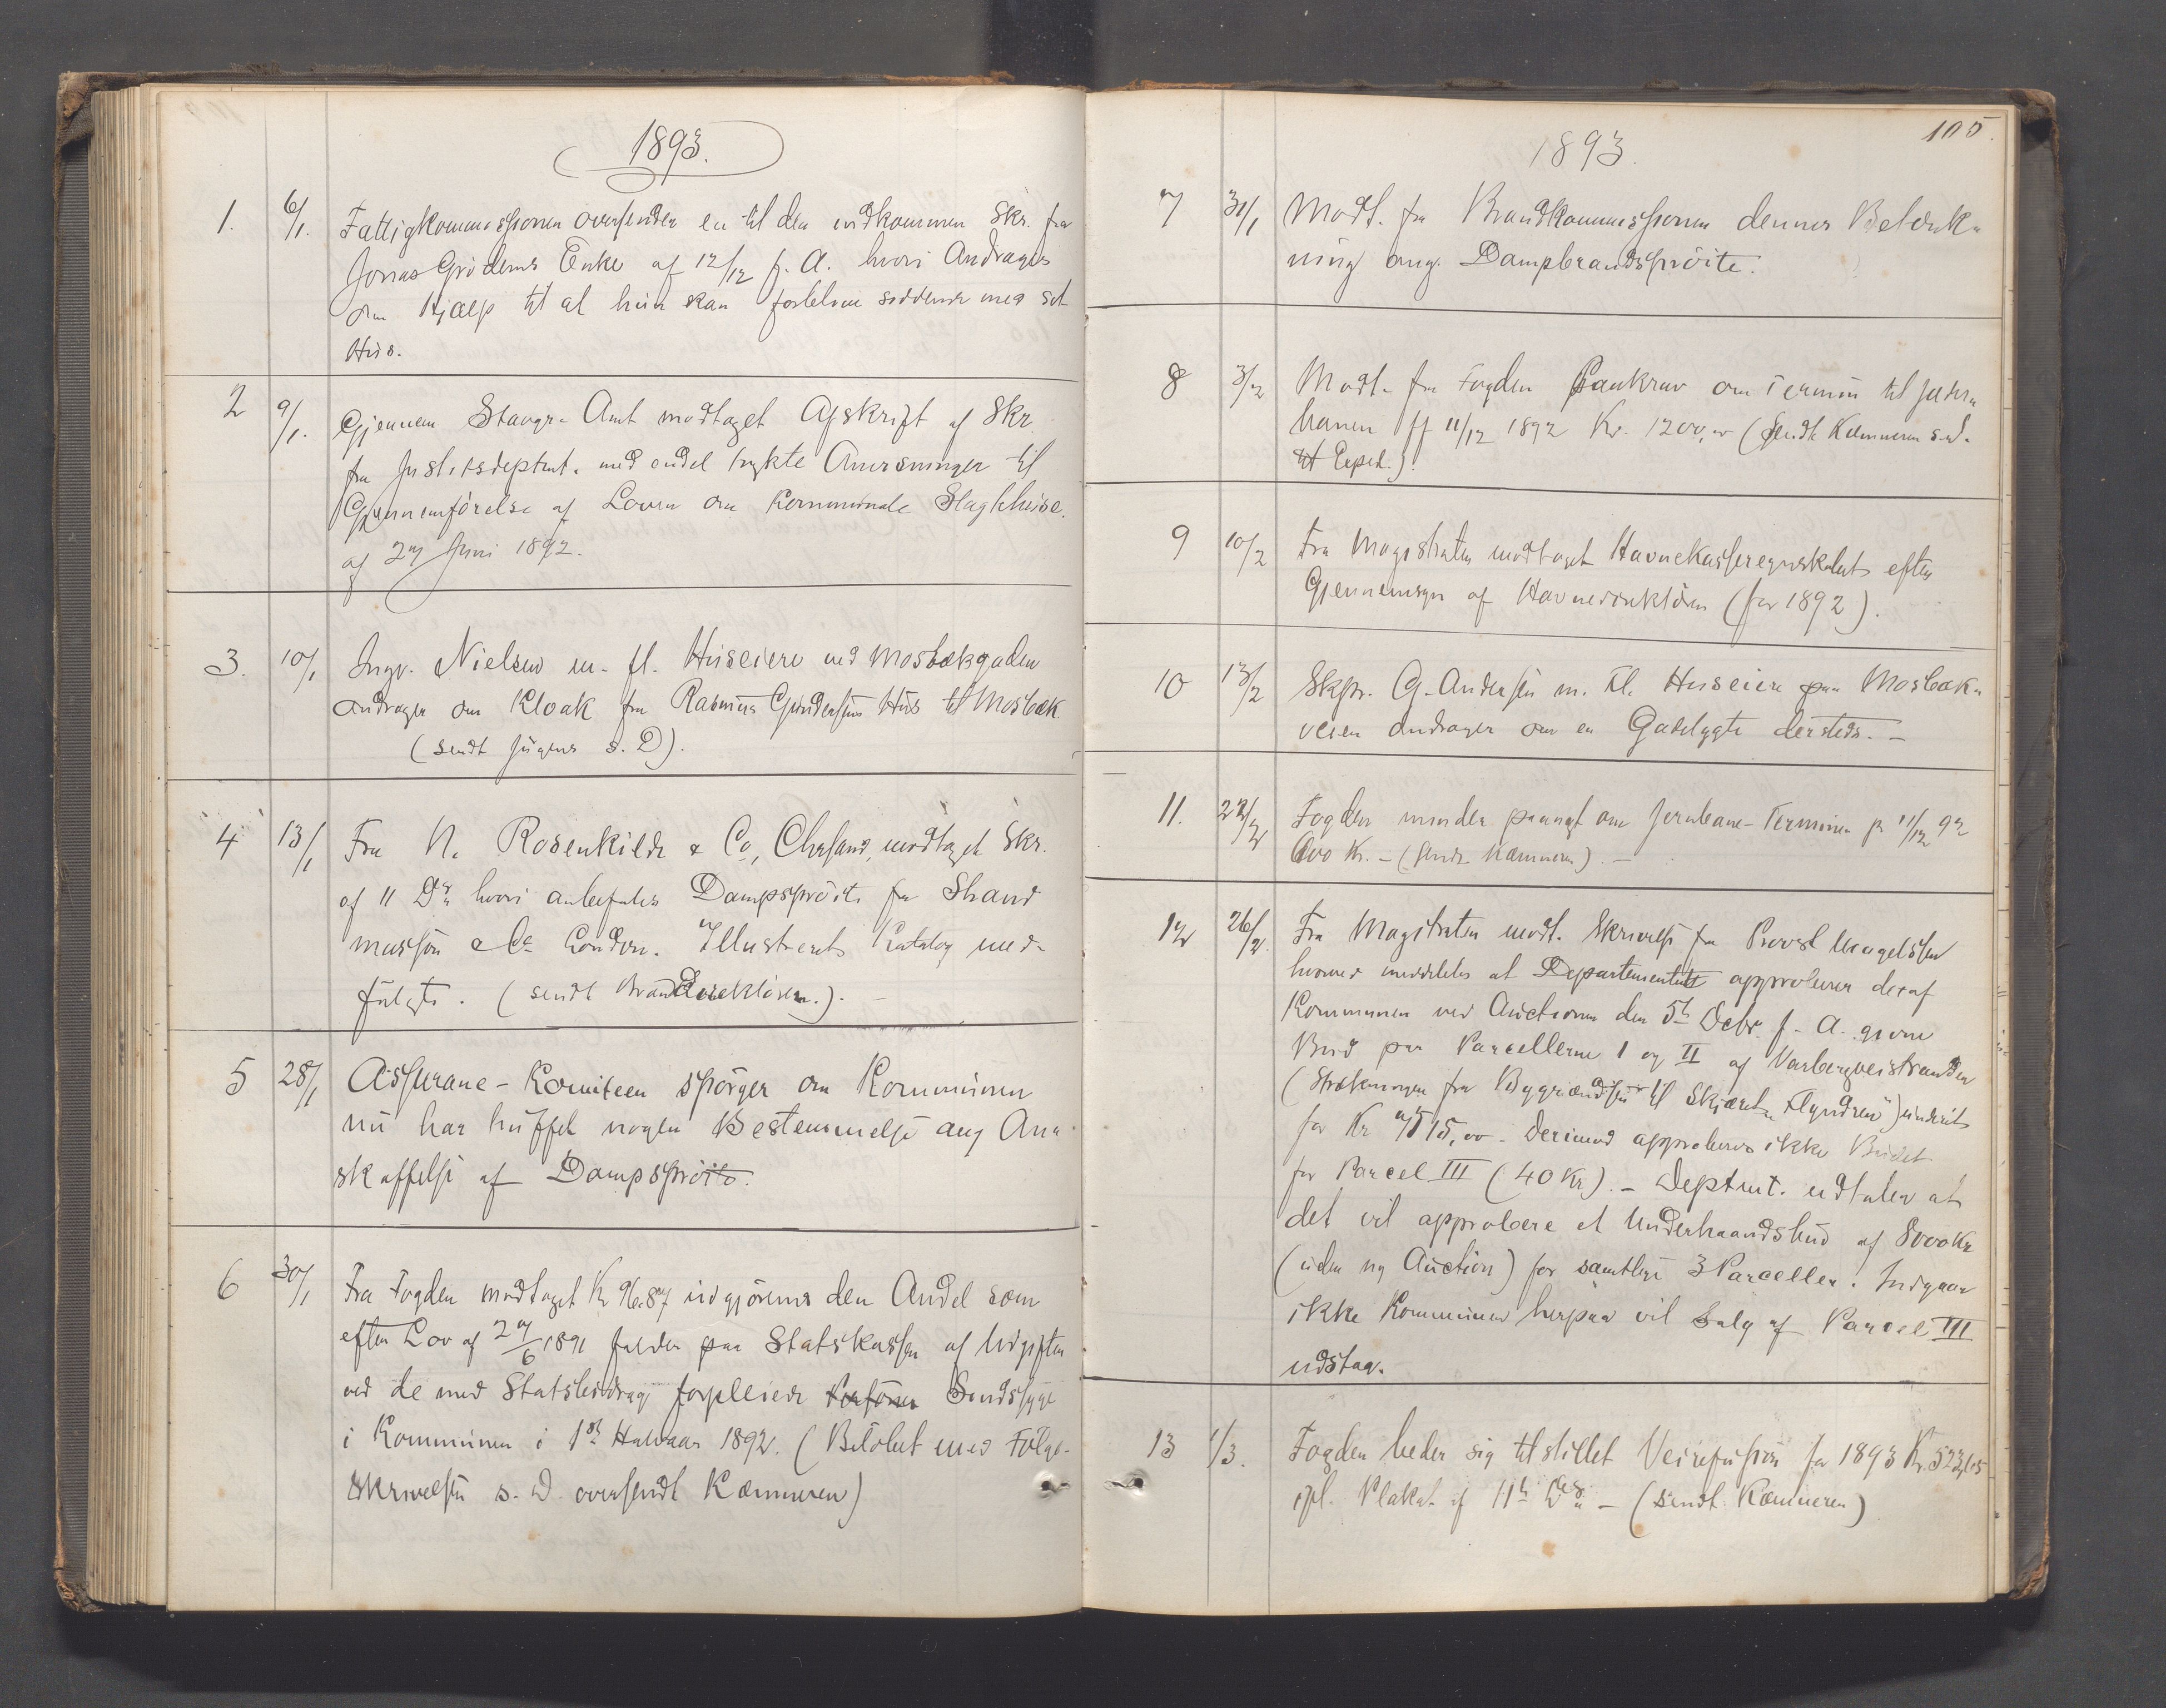 1893.
1. 6/1. Fattigkommissionen oversender en til den indkommen Skr. fra
Jonas Grødems Enke af 12/12 f. A. hvori Andrages
om Hjælp til at hun kan forblive siddende med sit
Hus.
2 9/1. Gjennem Stavgr. Amt modtaget Afskrift af Skr.
fra Justitsdeptmt. med endel trykte Anvisninger til
Gjennemførelse af Loven om Kommunale Slagthuse.
af 27 Juni 1892.
3. 10/1 Ingv. Nielsen m. fl. Huseiere ved Mosbækgaden
andrager om Kloak fra Rasmus Gundersens Hus til Mosbæk
(sendt Ingens s. D).
4 13/1 Fra N. Rosenkilde & Co, Chrsand, modtaget Skr.
af 11 Ds hvori anbefales Dampsprøite fra Shand
Masson & Co London. Illustreret Katalog med-
fulgte. (sendt Branddirektøren.). –
5 28/1 Assurance-Komiteen spørger om Kommunen
nu har truffet nogen Bestemmelse ang An-
skaffelse af Dampsprøite.
6 30/1 Fra Fogden modtaget Kr 96.87 udgjørende den Andel som
efter Lov af 27/6 1891 falder paa Statskassen af Udgiften
ved de med Statsbidrag forpleiede Personer Sindssyge
i Kommunen i 1ste Halvaar 1892. (Beløbet med Følge-
Skrivelsen s. D. oversendt Kæmneren)
105.
1893.
7 31/1 Modt. fra Brandkommissionen dennes Betænk-
ning ang. Dampbrandsprøite.
8 3/2 Modt. fra Fogden Paakrav om Termin til Jæder-
banen pr 11/12 1892 Kr. 1200,00 (sendt Kæmneren s.d.
til Exped.).
9 10/2 Fra Magistraten modtaget Havnekasseregnskabet efter
Gjennemsyn af Havnedirektøren (for 1892).
10 13/2 Skpr. G. Andersen m. Fl. Huseiere paa Mosbæk-
veien andrager om en Gadelygte dersteds. –
11. 22/2 Fogden minder paanyt om Jernbane-Terminen pr 11/12 92
600 Kr. – (sendt Kæmneren). –
12 26/2. Fra Magistraten modt. Skrivelse fra Provst
hvorved meddeles at Departementet approberer det af
Kommunen ved Auctionen den 5te Decbr f. A. givne
Bud paa Parcellerne I og II af Varbergveistranden
(Strækningen fra Byggrændsen til Skjæret "Flyndren")
for Kr 7515,00. Derimod approberes ikke Budet
for Parcel III (40 Kr). – Deptmt. udtaler at
det vil approbere et Underhaandsbud af 8000 Kr
(uden ny Auction) for samtlige 3 Parceller. Indgaar
ikke Kommunen herpaa vil Salg af Parcel III
udstaa.
13 1/3. Fogden beder sig tilstillet Veirefusion for 1893 Kr. 523,65
ifl. Plakat af 11te Ds – (sendt Kæmneren)